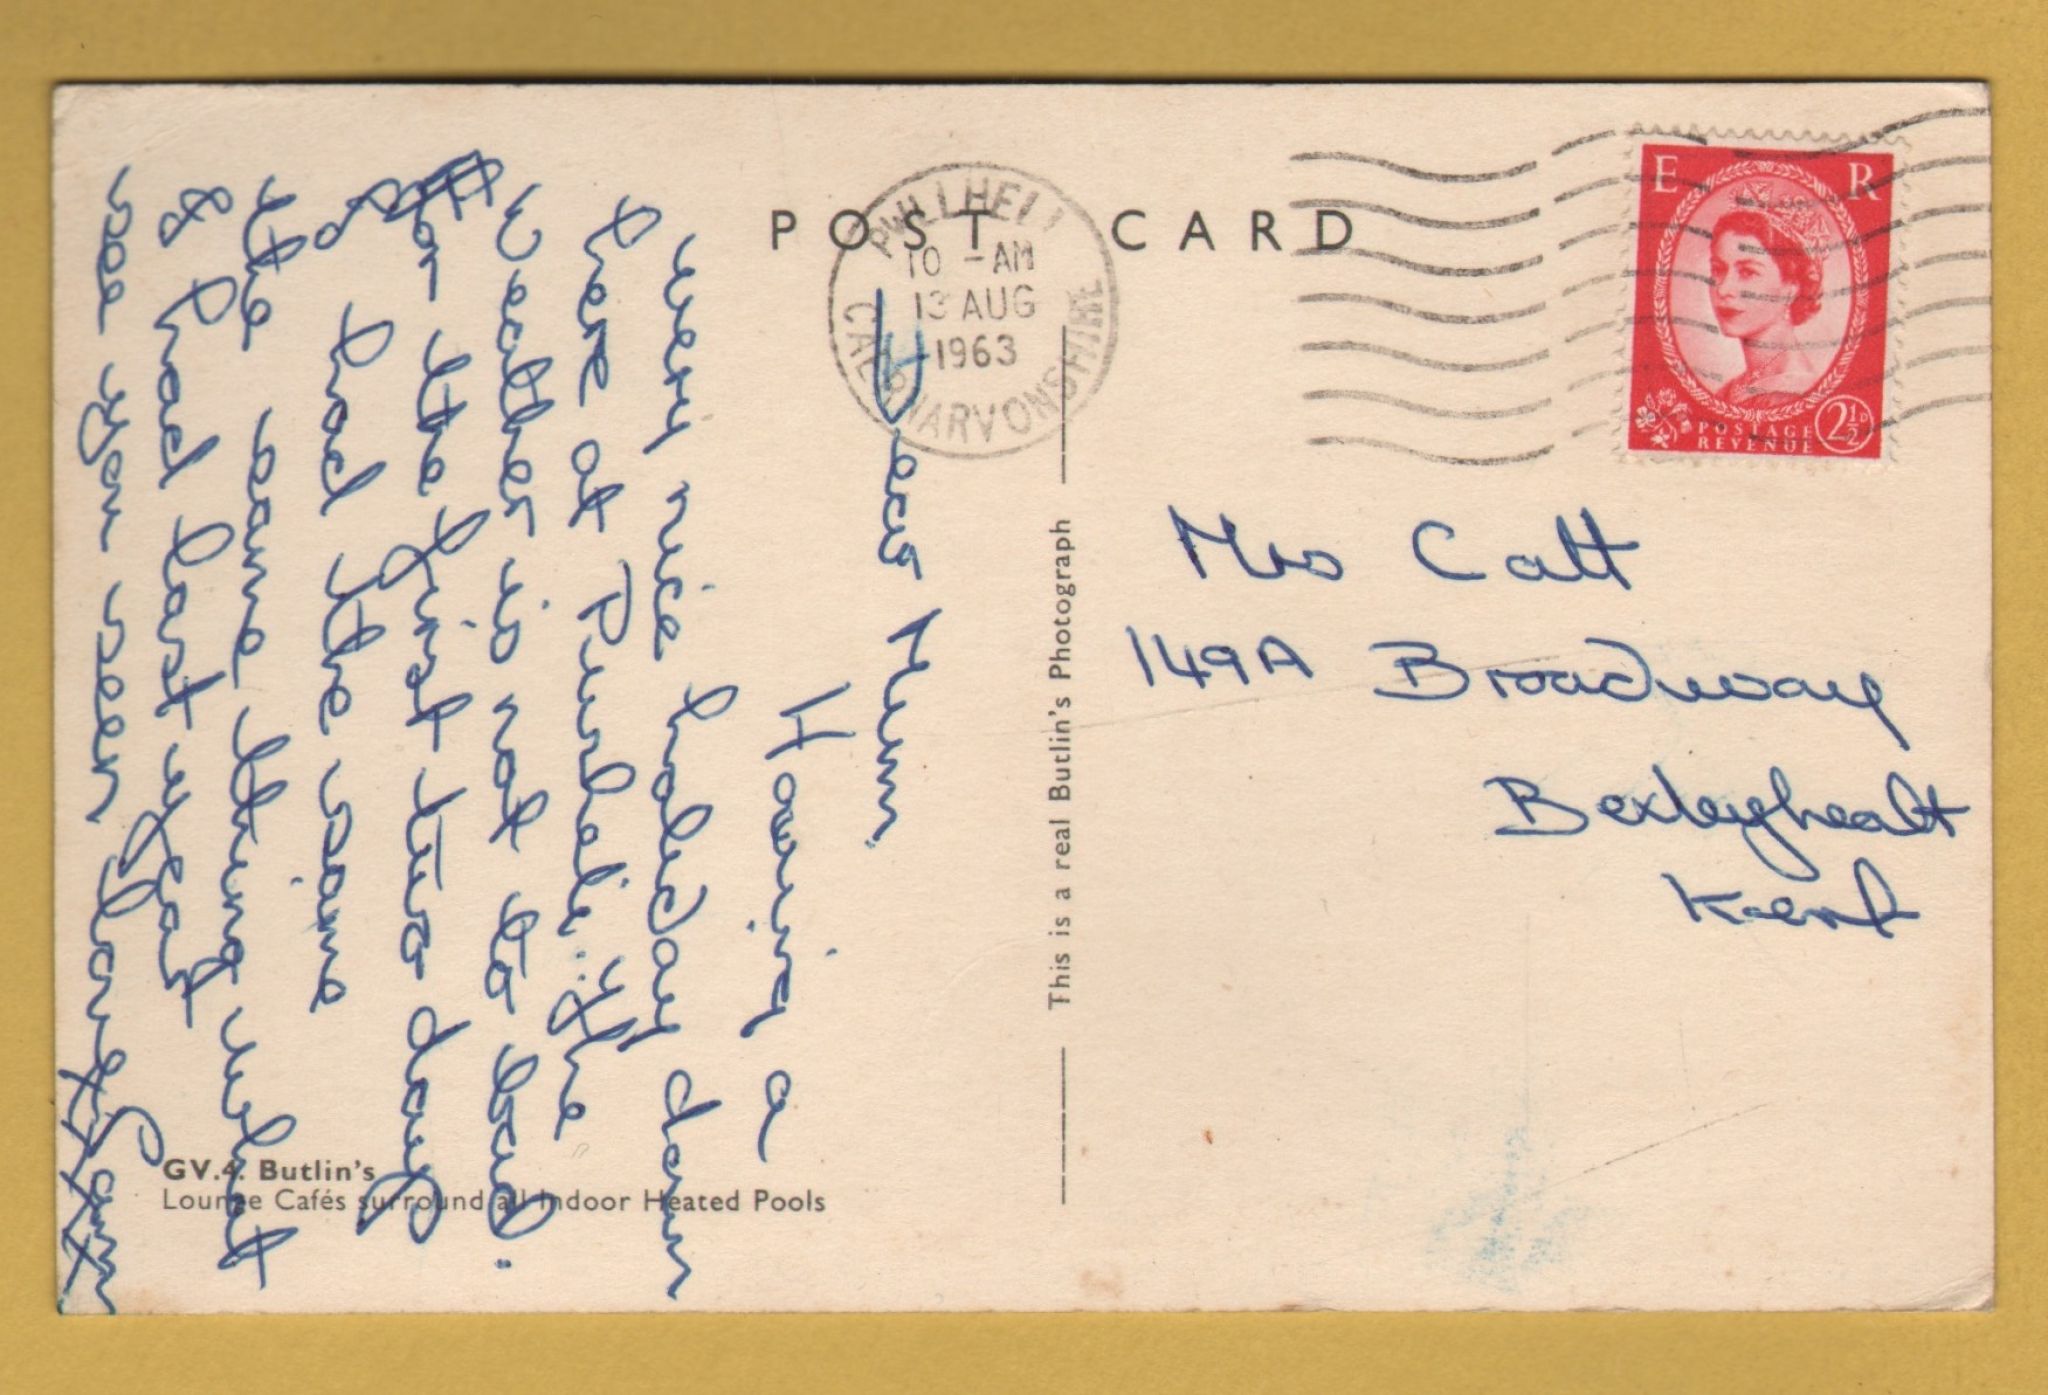 POST CARD
PWLLHELI
10 - AM
13 AUG
1963
CAERNARVONSHIRE
E R
POSTAGE
REVENUE
2½D
Dear Mum
Having a
very nice holiday down
here at Pwlheli. the
Weather is not to bad.
for the first two days
had the same
the same thing what
I had last year
see you love
This is a real Butlin's Photograph
Mrs Catt
149A Broadway
Bexleyheath
Kent
GV.4. Butlin's
Lounge Cafés surround all Indoor Heated Pools